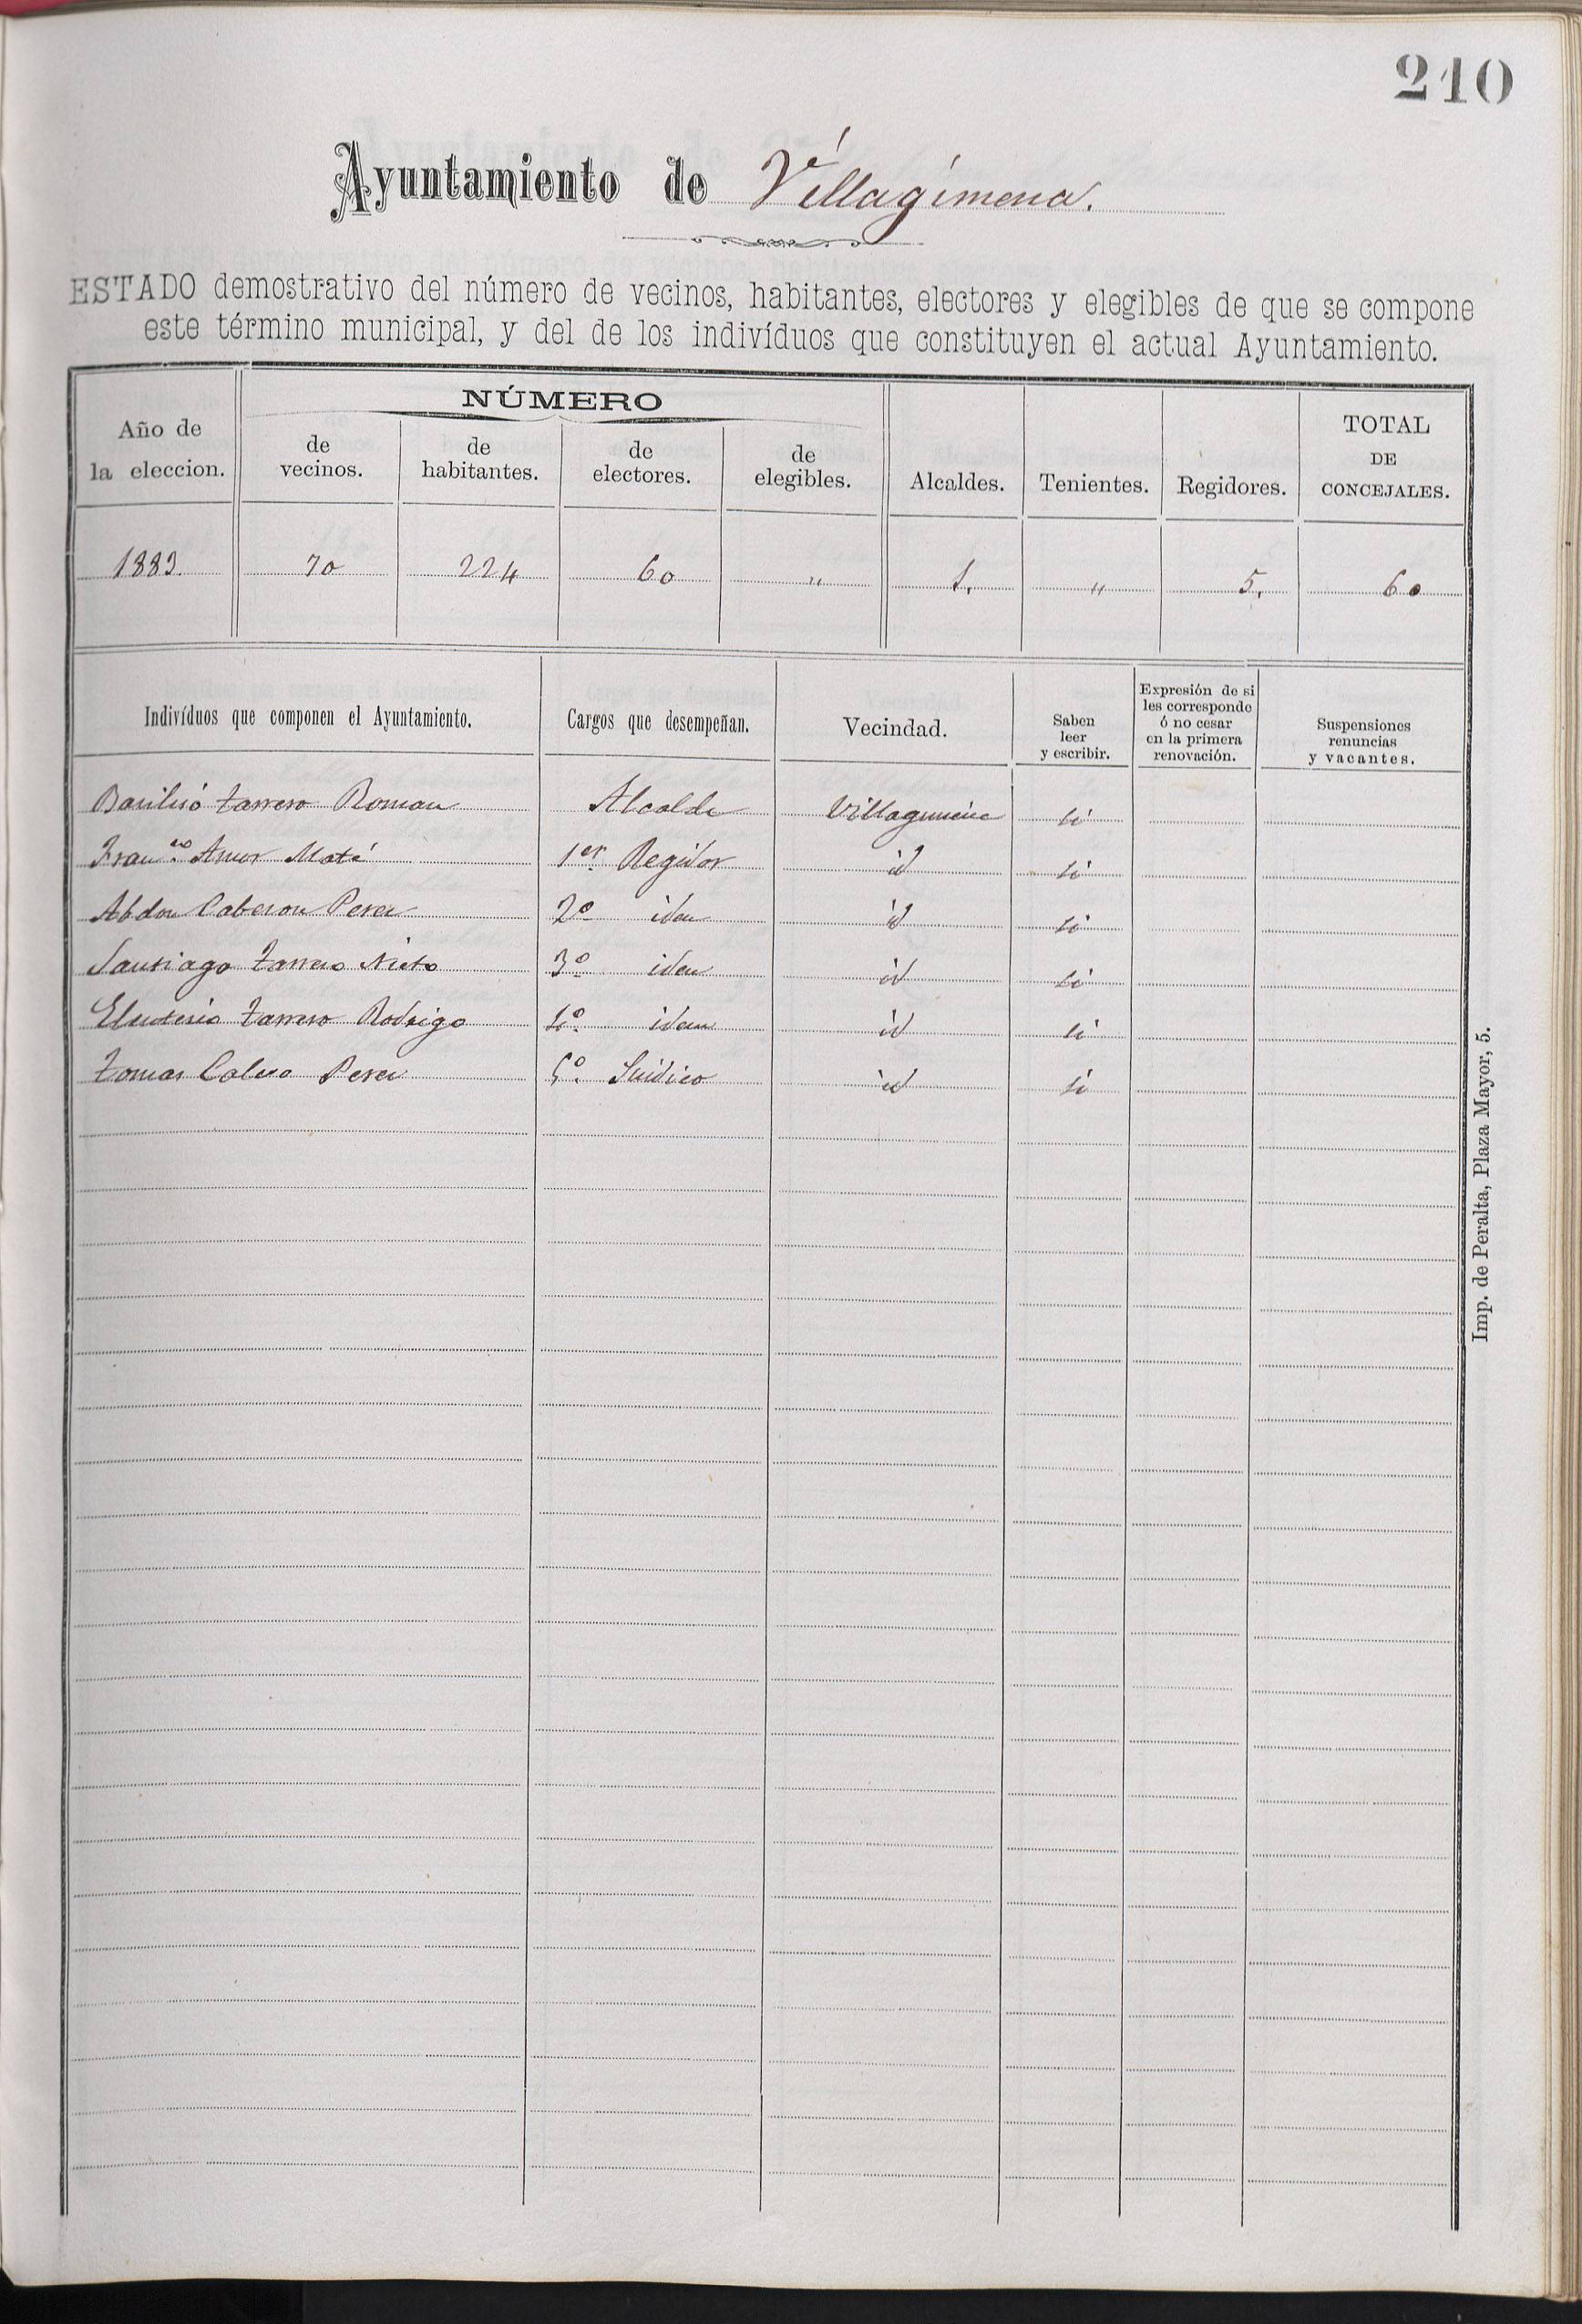 210
Ayuntamiento de Villagimena.
ESTADO demostrativo del número de vecinos, habitantes, electores y elegibles de que se compone
este término municipal, y del de los indivíduos que constituyen el actual Ayuntamiento.
Año de la eleccion. NÚMERO de vecinos. de habitantes. de electores. de elegibles. Alcaldes. Tenientes. Regidores. TOTAL DE CONCEJALES.
1883. 70 224 60 " 1. " 5. 6
Indivíduos que componen el Ayuntamiento. Cargos que desempeñan. Vecindad. Saben leer y escribir. Expresión de si les corresponde ó no cesar en la primera renovación. Suspensiones renuncias y vacantes.
Basilisó Tarrero Roman Alcalde Villagimena si
Fran.co Amor Maté 1er Regidor id si
Abdon Caberon Perez 2º iden id si
Santiago Tarrero Nieto 3º iden id si
Eleuterio Tarrero Rodrigo 4º idem id si
Tomas Perez 5º Sindico id si
Imp. de Peralta, Plaza Mayor, 5.